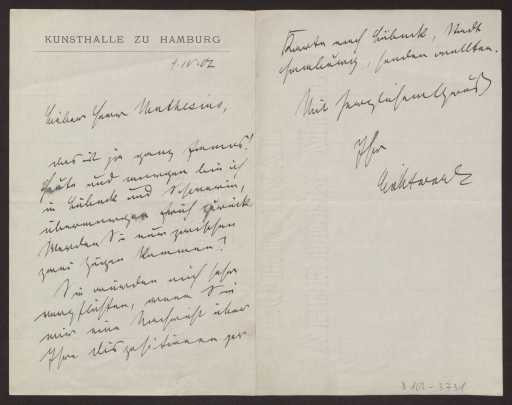 KUNSTHALLE ZU HAMBURG
4.IV.02
Lieber Herr Muthesius,
das ist ja ganz famos!
Heute und morgen bin ich
in Lübeck und Schwerin,
übermorgen früh zurück
Werden Sie nun zwischen
zwei Zügen kommen?
Sie würden mich sehr
verpflichten, wenn Sie
mir eine Nachricht über
Ihre Dispositionen per
Karte nach Lübeck, Stadt
Hamburg, senden wollten.
Mit herzlichem Gruß
Ihr
Lichtwark